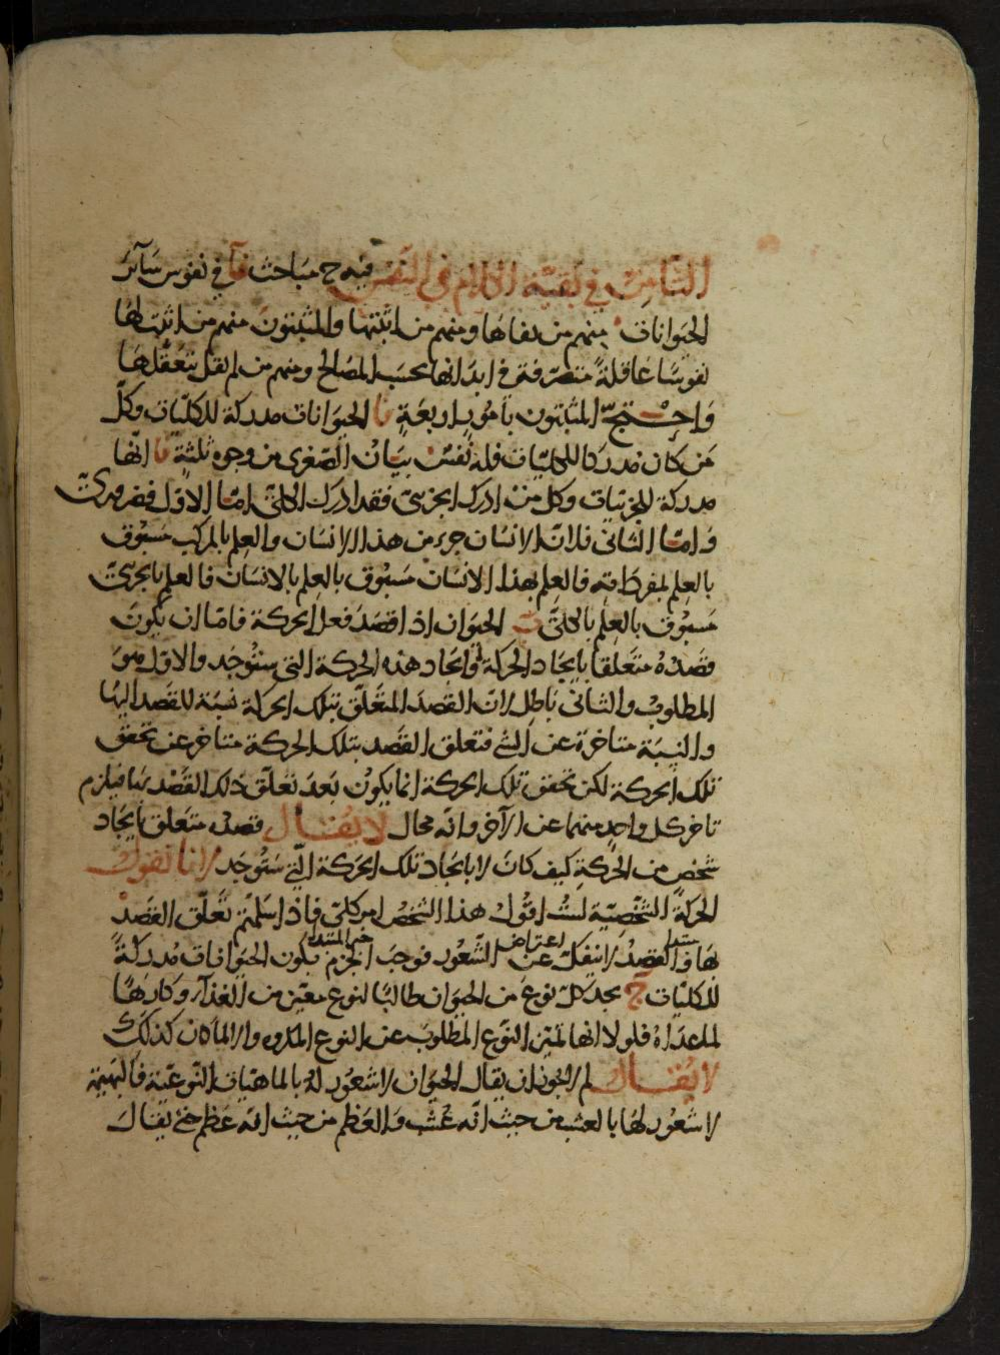 الثامن في بقية الكلام في النفس فيه ح مباحث فآ في نفوس سآئر
الحيوانات منهم من نفاها ومنهم من اثبتها والمثبتون منهم من اثبت لها
نفوسًا عاقلةً متصرفة في ابدانها بحسب المصالح ومنهم من لم يقل بتعقلها
واحتج المثبتون بامور اربعةٍ آ الحيوانات مدركة للكليات وكلّ
من كان مدركا للكليات فله نفس بيان الصغرى من وجوه ثلثةٍ آ انّها
مدركة للجزئيات وكل من ادرك الجزئي فقد ادرك الكلي امّا الاوّل فضروريّ
وامّا الثانى فلانّ الانسان جزء من هذا الانسان والعلم بالمركب مسبوق
بالعلم بمفرداته فالعلم بهذا الانسان مسبوق بالعلم بالانسان فالعلم بالجزئيّ
مسبوق بالعلم بالكليّ ب الحيوان اذا قصد فعل الحركة فامّا ان يكون
قصده متعلقا بايجاد الحركة او ايجاد هذه الحركة التي ستوجد والاول هو
المطلوب والثانى باطل لانّ القصد المتعلّق بتلك الحركة نسبة للقصد اليها
والنسبة متاخرة عن الشئ فتعلق القصد بتلك الحركة متاخر عن تحقق
تلك الحركة لكن تحقق تلك الحركة انما يكون بعد تعلّق ذلك القصد بها فيلزم
تاخر كل واحدٍ منهما عن الآخر وانّه محال لا يقال قصده متعلق بايجاد
شخص من الحركةِ كيف كان لا بايجاد تلك الحركة التي ستوجد لانا نقول
الحركة الشخصيّة لست اقول هذا الشخص امر كليّ فاذا سلمتم تعلّق القصد
بها والقصد لا ينفك عن الشّعور فوجب الجزم بكون الحيوانات مدركةً
مبتدا اعتراض خبر المبتدا
للكليات ج نجد كلّ نوع من الحيوان طالبًا لنوع معيّن من الغذآء وكارهًا
لما عداه فلولا انها تميز النوع المطلوب عن النوع المكروه والا لما كان كذلك
لا يقال لم لا يجوز ان يقال الحيوان لا شعور له بالماهيات النّوعية فالبهيمة
لا شعور لها بالعشب من حيث انّه عُشب والعظم من حيث انه عظم حتى يقال